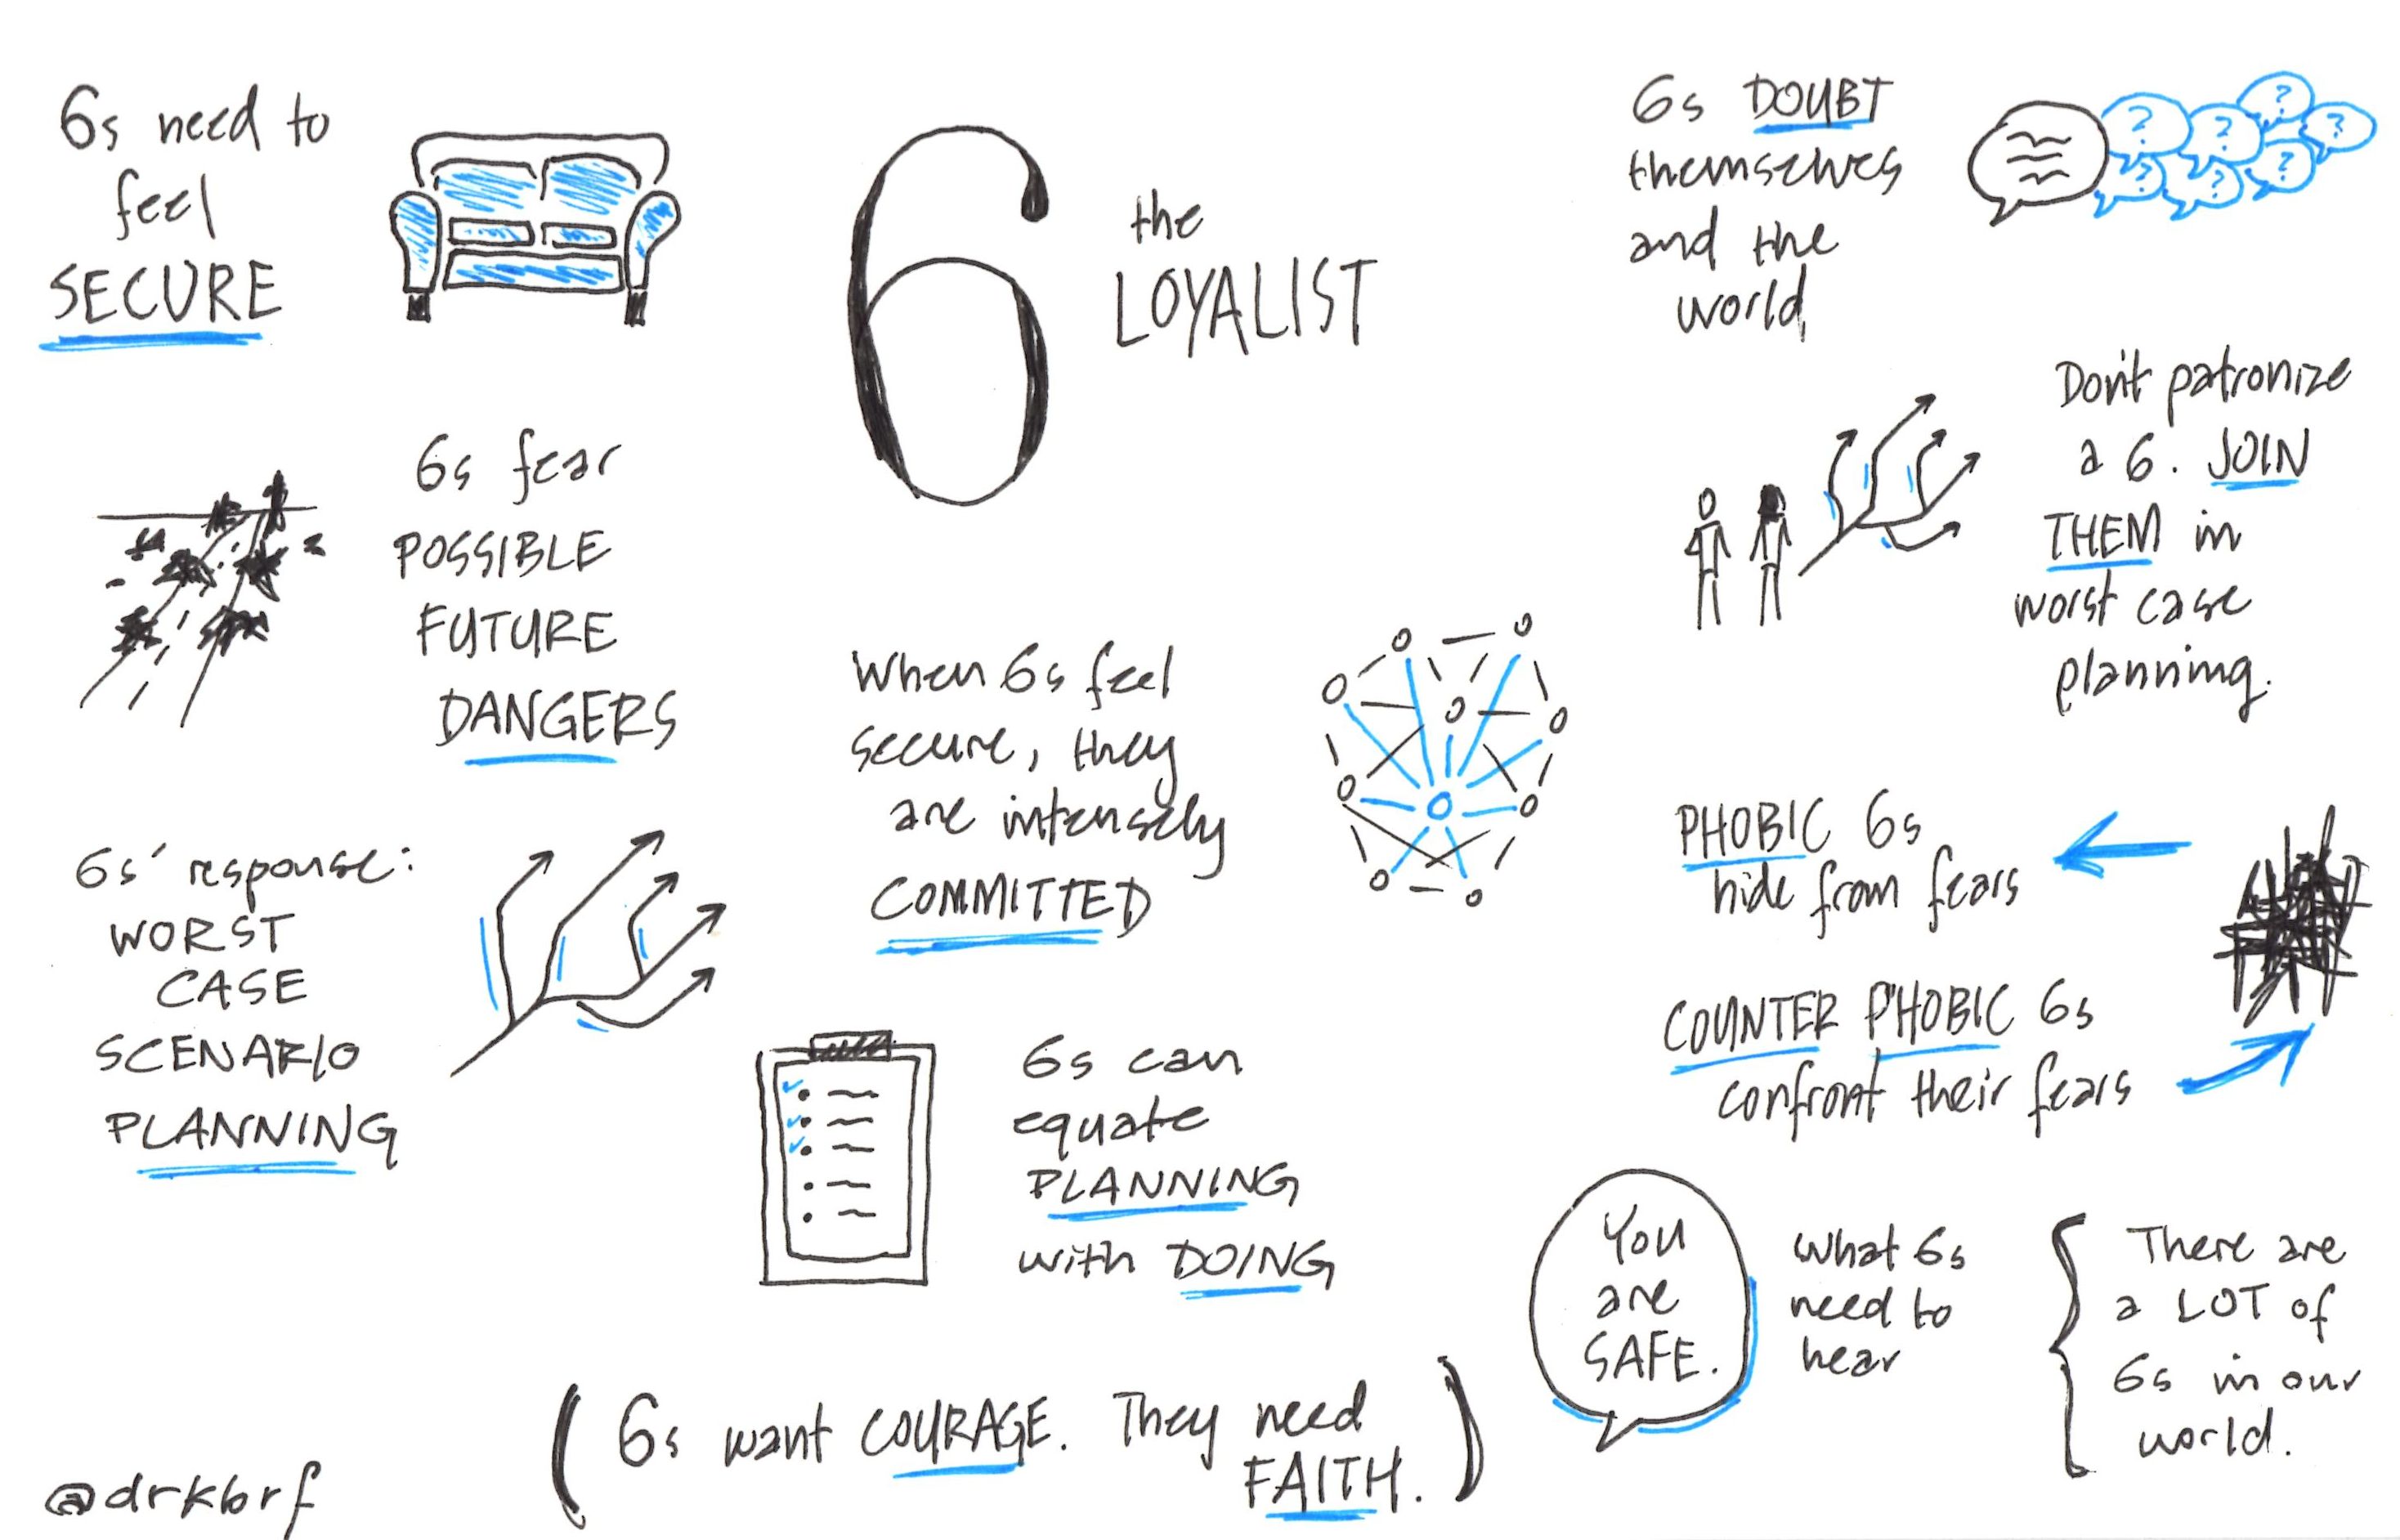 6s need to
feel
SECURE
6
the
LOYALIST
6s DOUBT
themselves
and the
world
?
?
?
?
?
?
?
6s fear
POSSIBLE
FUTURE
DANGERS
Don't patronize
a 6. JOIN
THEM in
worst case
planning.
When 6s feel
secure, they
are intensely
COMMITTED
6s' response:
WORST
CASE
SCENARIO
PLANNING
PHOBIC 6s
hide from fears
COUNTER PHOBIC 6s
confront their fears
6s can
equate
PLANNING
with DOING
You
are
SAFE.
what 6s
need to
hear
There are
a LOT of
6s in our
world.
(6s want COURAGE. They need
FAITH.)
@drkbrf